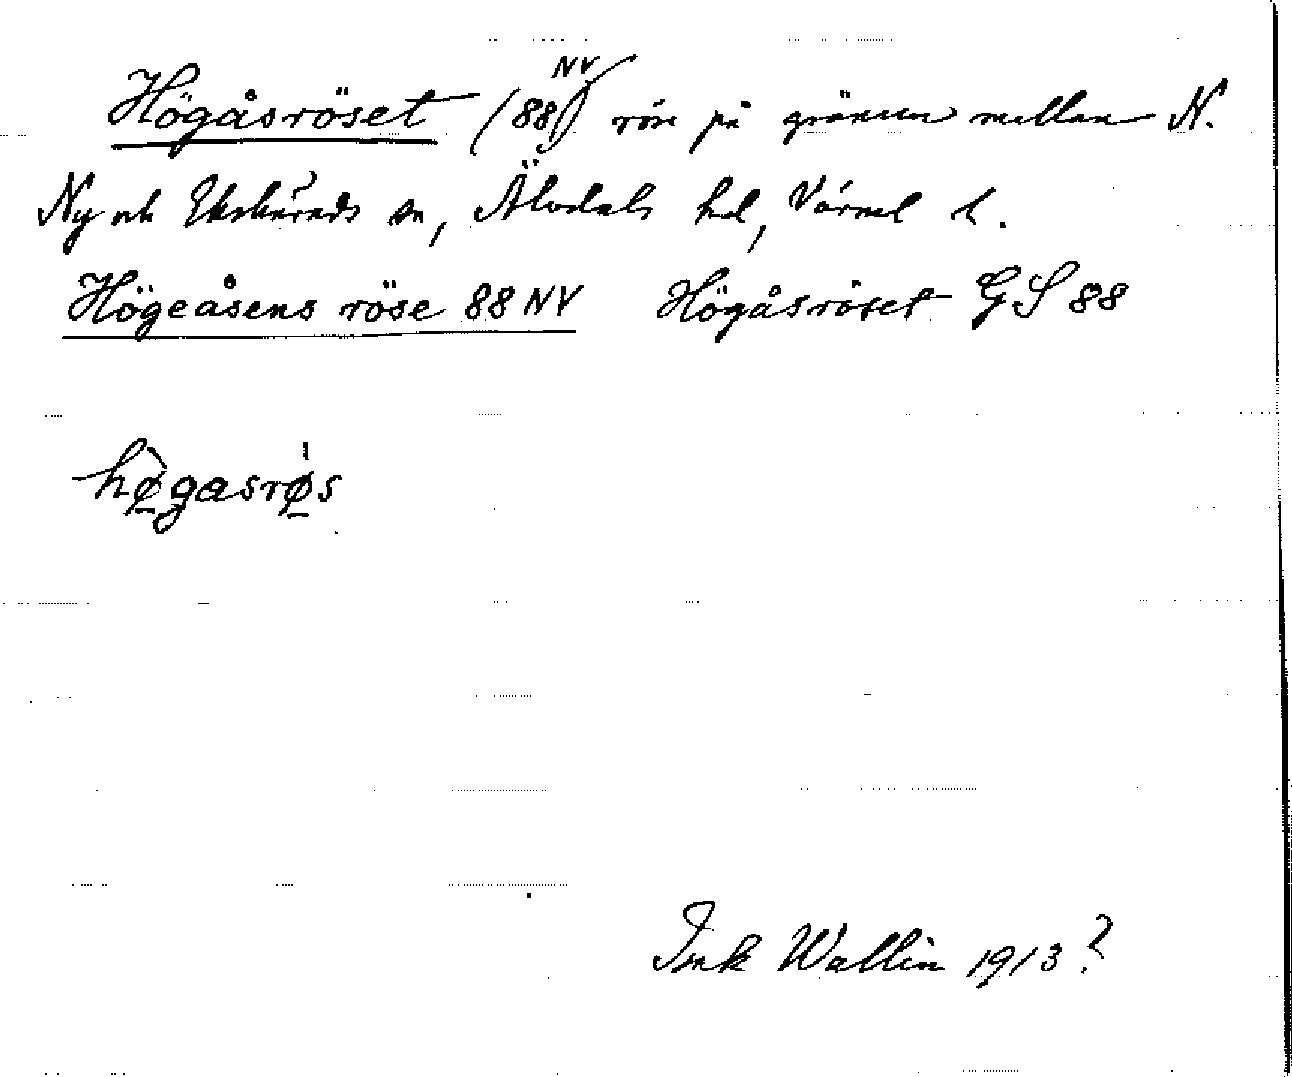 Högåsröset (88 NV) röse på gränsen mellan N.
Ny och Ekshärads sn, Älvdals hd, Värml l.
Högeåsens röse 88 NV Högåsröset GS 88
hø̀gasrø̍s
Wallin 1913?